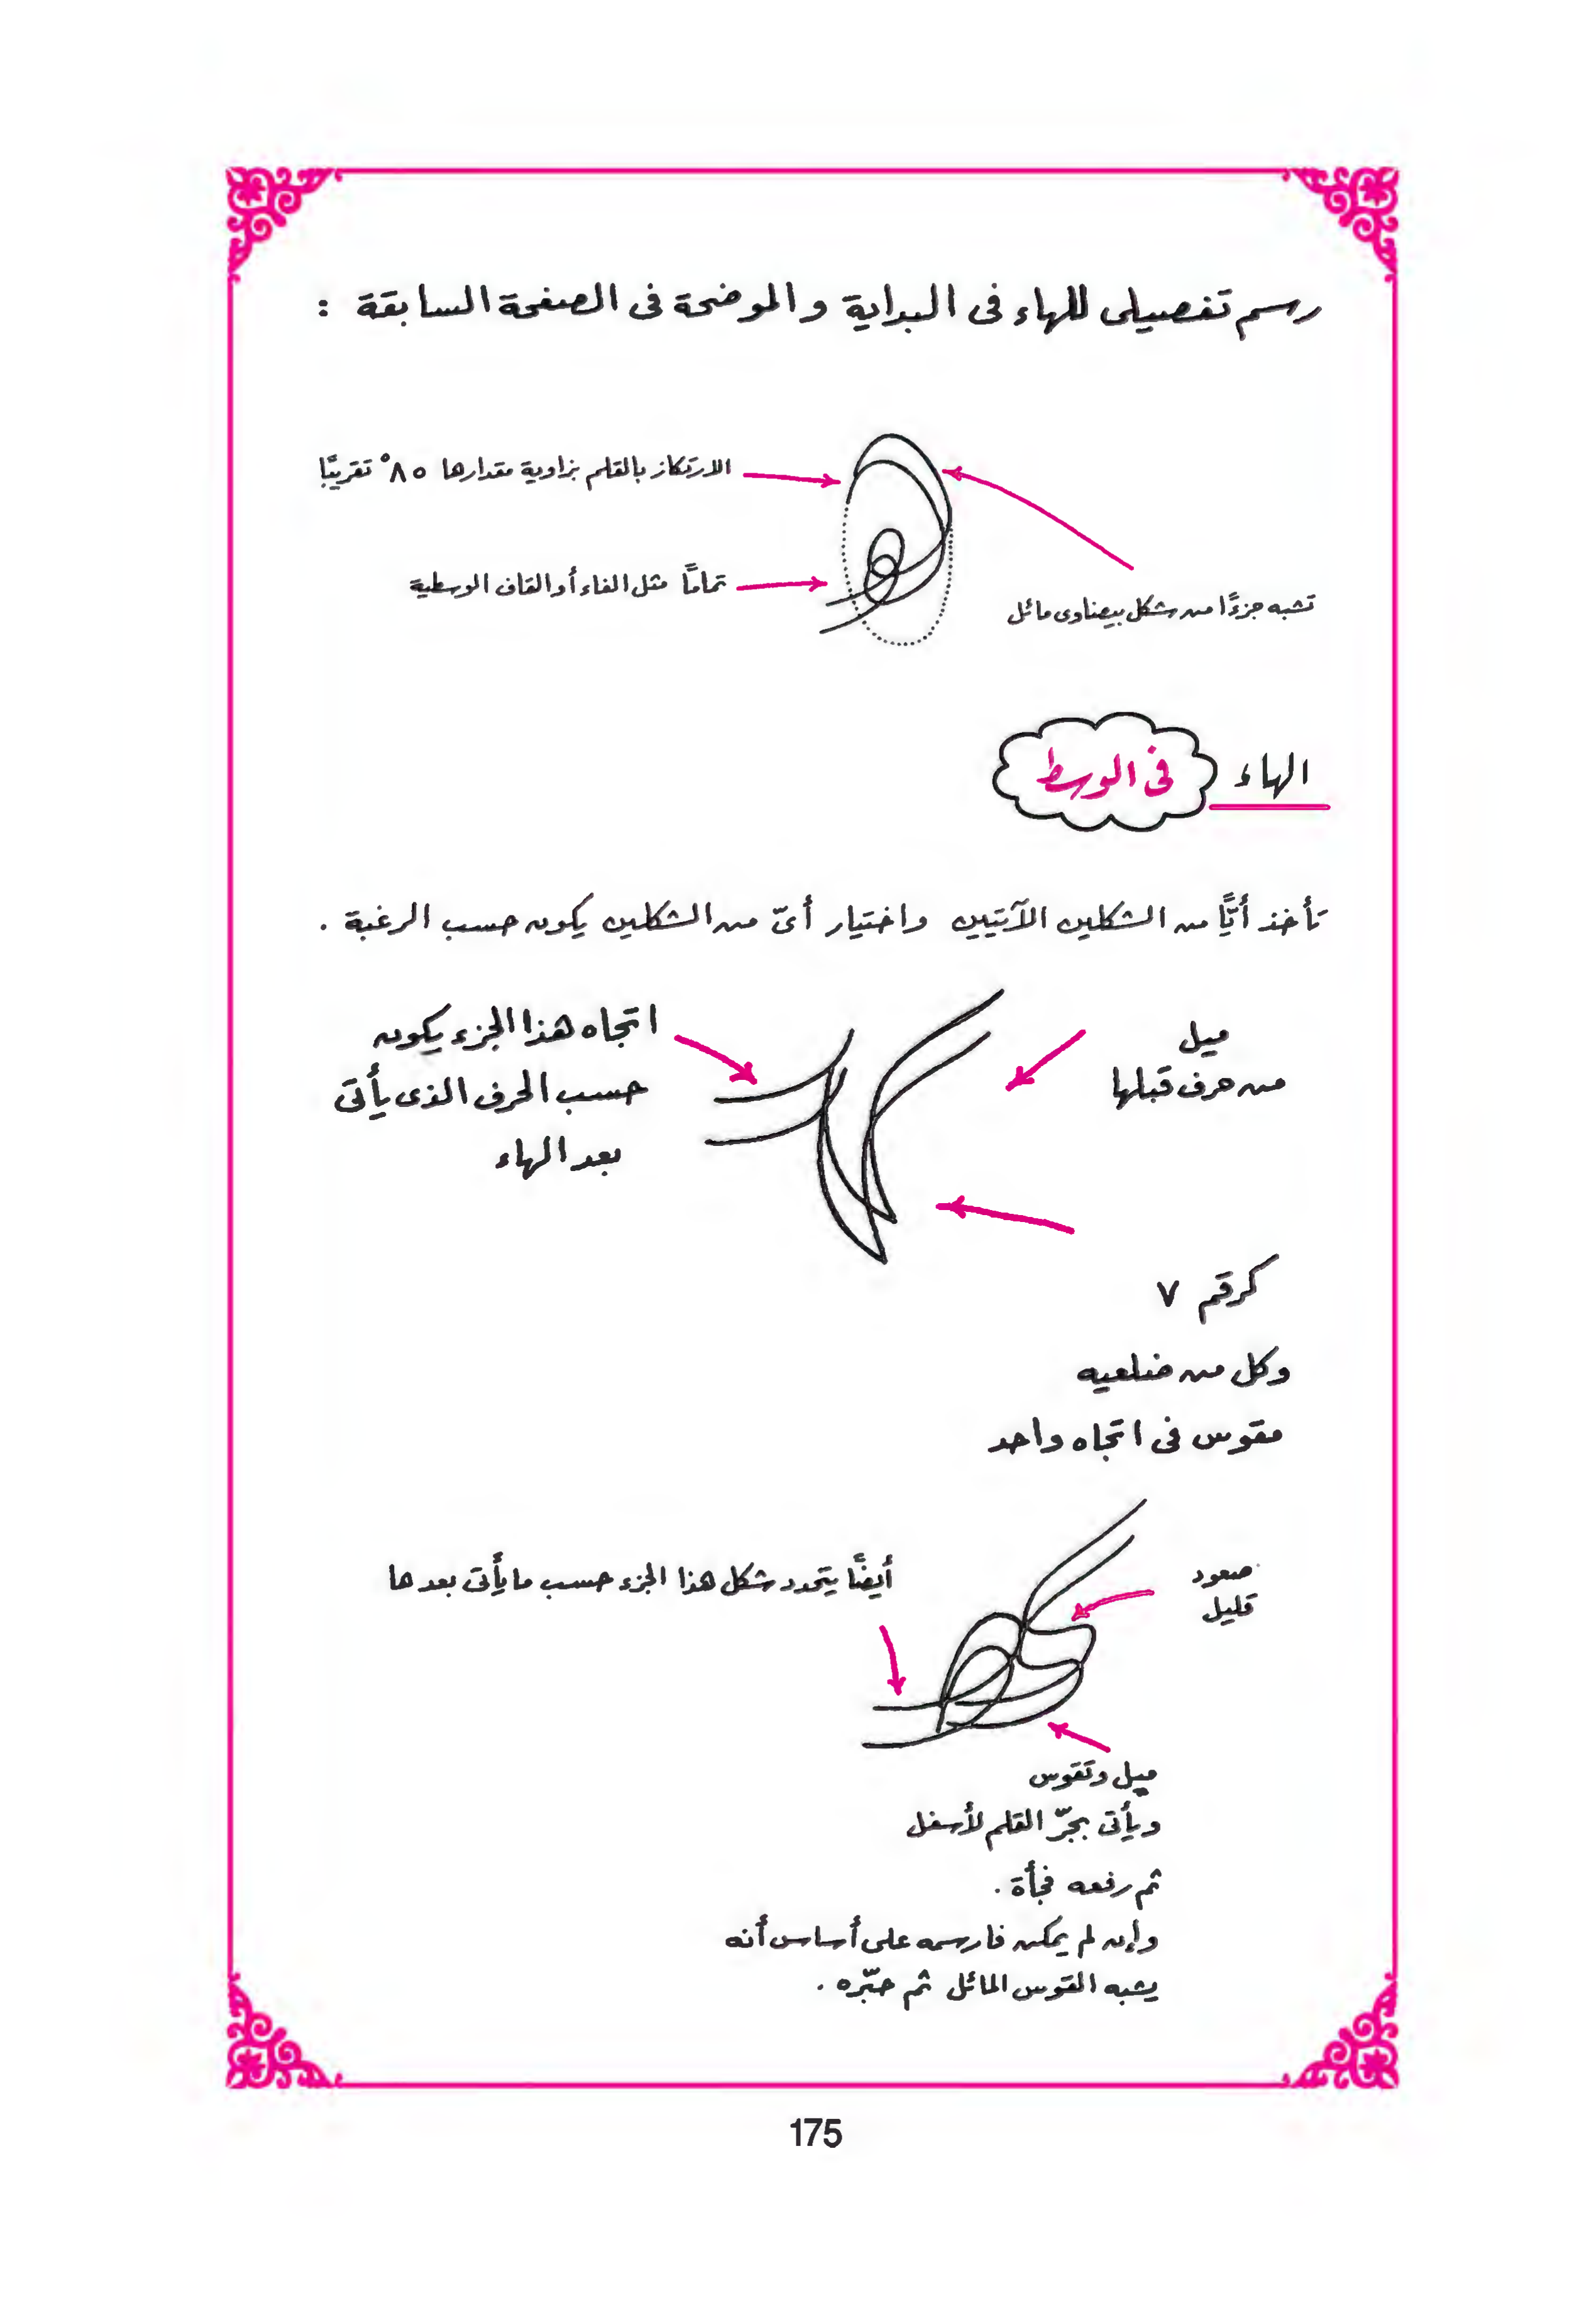 رسم تفصيلى للهاء فى البداية والموضحة فى الصفحة السابقة :
الارتكاز بالقلم بزاوية مقدارها ٨٥° تقريبًا
تمامًا مثل الفاء أو القاف الوسطية
تشبه جزءًا من شكل بيضاوى مائل
الهاء فى الوسط
تأخذ أيًّا من الشكلين الآتيين واختيار أىّ من الشكلين يكون حسب الرغبة .
ميل
من حرف قبلها
اتجاه هذا الجزء يكون
حسب الحرف الذى يأتى
بعد الهاء
كرقم ٧
وكل من ضلعيه
مقوس فى اتجاه واحد
صعود
قليل
أيضًا يتحدد شكل هذا الجزء حسب ما يأتى بعدها
ميل وتقوس
ويأتى بجرّ القلم لأسفل
ثم رفعه فجأة .
وإن لم يمكن فارسمه على أساس أنه
يشبه القوس المائل ثم حبّره .
175